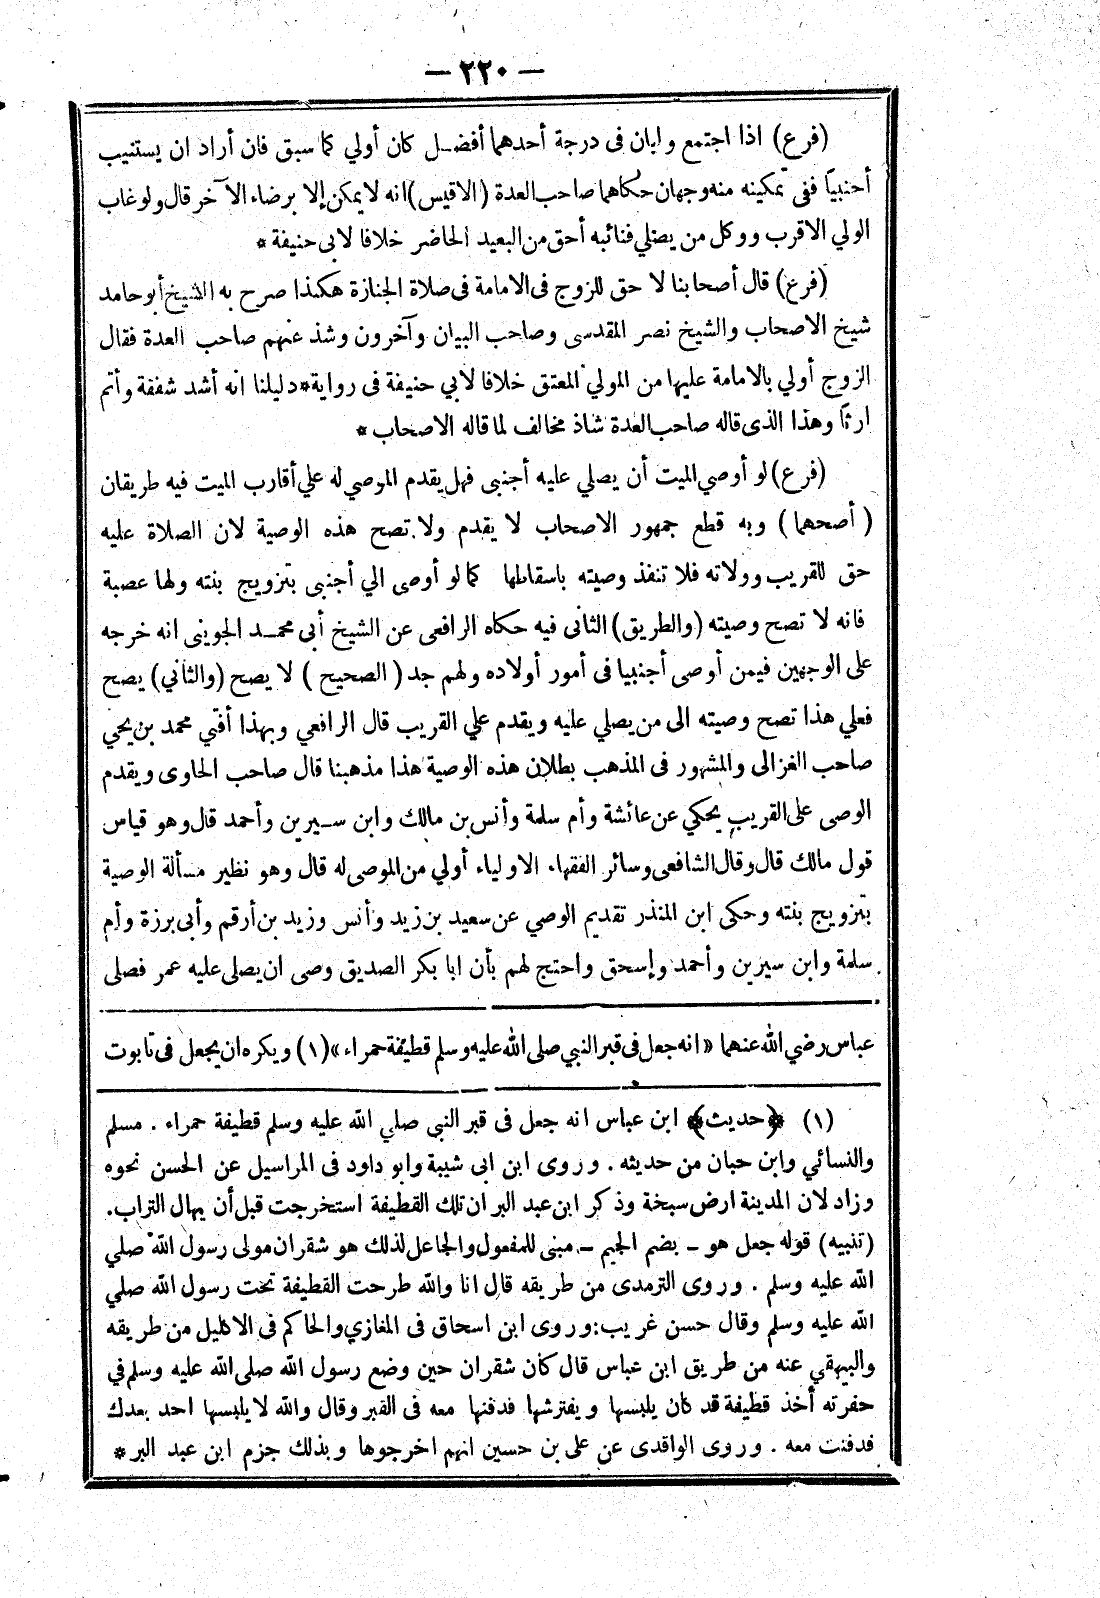 — ٢٢٠ —
(فرع) اذا اجتمع وليان فى درجة أحدهما أفضـل كان أولي كما سبق فان أراد ان يستنيب
أجنبيا ففى تمكينه منه وجهان حكاهما صاحب العدة (الاقيس) انه لا يمكن إلا برضاء الآخر قال ولو غاب
الولي الاقرب ووكل من يصلي فنائبه أحق من البعيد الحاضر خلافا لابى حنيفة *
(فرع) قال أصحابنا لا حق للزوج فى الامامة فى صلاة الجنازة هكذا صرح به الشيخ أبو حامد
شيخ الاصحاب والشيخ نصر المقدسى وصاحب البيان وآخرون وشذ عنهم صاحب العدة فقال
الزوج أولي بالامامة عليها من المولي المعتق خلافا لأبي حنيفة فى رواية * دليلنا انه أشد شفقة وأتم
ارثا وهذا الذى قاله صاحب العدة شاذ مخالف لما قاله الاصحاب *
(فرع) لو أوصي الميت أن يصلي عليه أجنبى فهل يقدم الموصي له علي أقارب الميت فيه طريقان
(أصحهما) وبه قطع جمهور الاصحاب لا يقدم ولا تصح هذه الوصية لان الصلاة عليه
حق للقريب وولاته فلا تنفذ وصيته باسقاطها كما لو أوصى الي أجنبى بتزويج بنته ولها عصبة
فانه لا تصح وصيته (والطريق) الثانى فيه حكاه الرافعى عن الشيخ أبى محمـد الجوينى انه خرجه
على الوجهين فيمن أوصى أجنبيا فى أمور أولاده ولهم جد (الصحيح) لا يصح (والثاني) يصح
فعلي هذا تصح وصيته الى من يصلي عليه ويقدم علي القريب قال الرافعي وبهذا أفتي محمد بن يحي
صاحب الغزالى والمشهور فى المذهب بطلان هذه الوصية هذا مذهبنا قال صاحب الحاوى ويقدم
الوصى على القريب يحكي عن عائشة وأم سلمة وأنس بن مالك وابن سـيرين وأحمد قال وهو قياس
قول مالك قال وقال الشافعى وسائر الفقهاء الاولياء أولي من الموصى له قال وهو نظير مسألة الوصية
بتزويج بنته وحكى ابن المنذر تقديم الوصي عن سعيد بن زيد وأنس وزيد بن أرقم وأبى برزة وأم
سلمة وابن سيرين وأحمد وإسحق واحتج لهم بأن ابا بكر الصديق وصى ان يصلى عليه عمر فصلى
عباس رضي الله عنهما «انه جعل فى قبر النبي صلى الله عليه وسلم قطيفة حمراء» (١) ويكره ان يجعل فى تابوت
(١) ﴿حديث﴾ ابن عباس انه جعل فى قبر النبى صلي الله عليه وسلم قطيفة حمراء . مسلم
والنسائي وابن حبان من حديثه . وروى ابن ابى شيبة وابو داود فى المراسيل عن الحسن نحوه
وزاد لان المدينة ارض سبخة وذكر ابن عبد البر ان تلك القطيفة استخرجت قبل أن يهال التراب.
(تنبيه) قوله جعل هو ـ بضم الجيم ـ مبنى للمفعول والجاعل لذلك هو شقران مولى رسول الله صلي
الله عليه وسلم . وروى الترمدى من طريقه قال انا والله طرحت القطيفة تحت رسول الله صلي
الله عليه وسلم وقال حسن غريب: وروى ابن اسحاق فى المغازي والحاكم فى الاكليل من طريقه
والبيهقي عنه من طريق ابن عباس قال كان شقران حين وضع رسول الله صلى الله عليه وسلم في
حفرته أخذ قطيفة قد كان يلبسها ويفترشها فدفنها معه فى القبر وقال والله لا يلبسها احد بعدك
فدفنت معه . وروى الواقدى عن على بن حسين انهم اخرجوها وبذلك جزم ابن عبد البر *